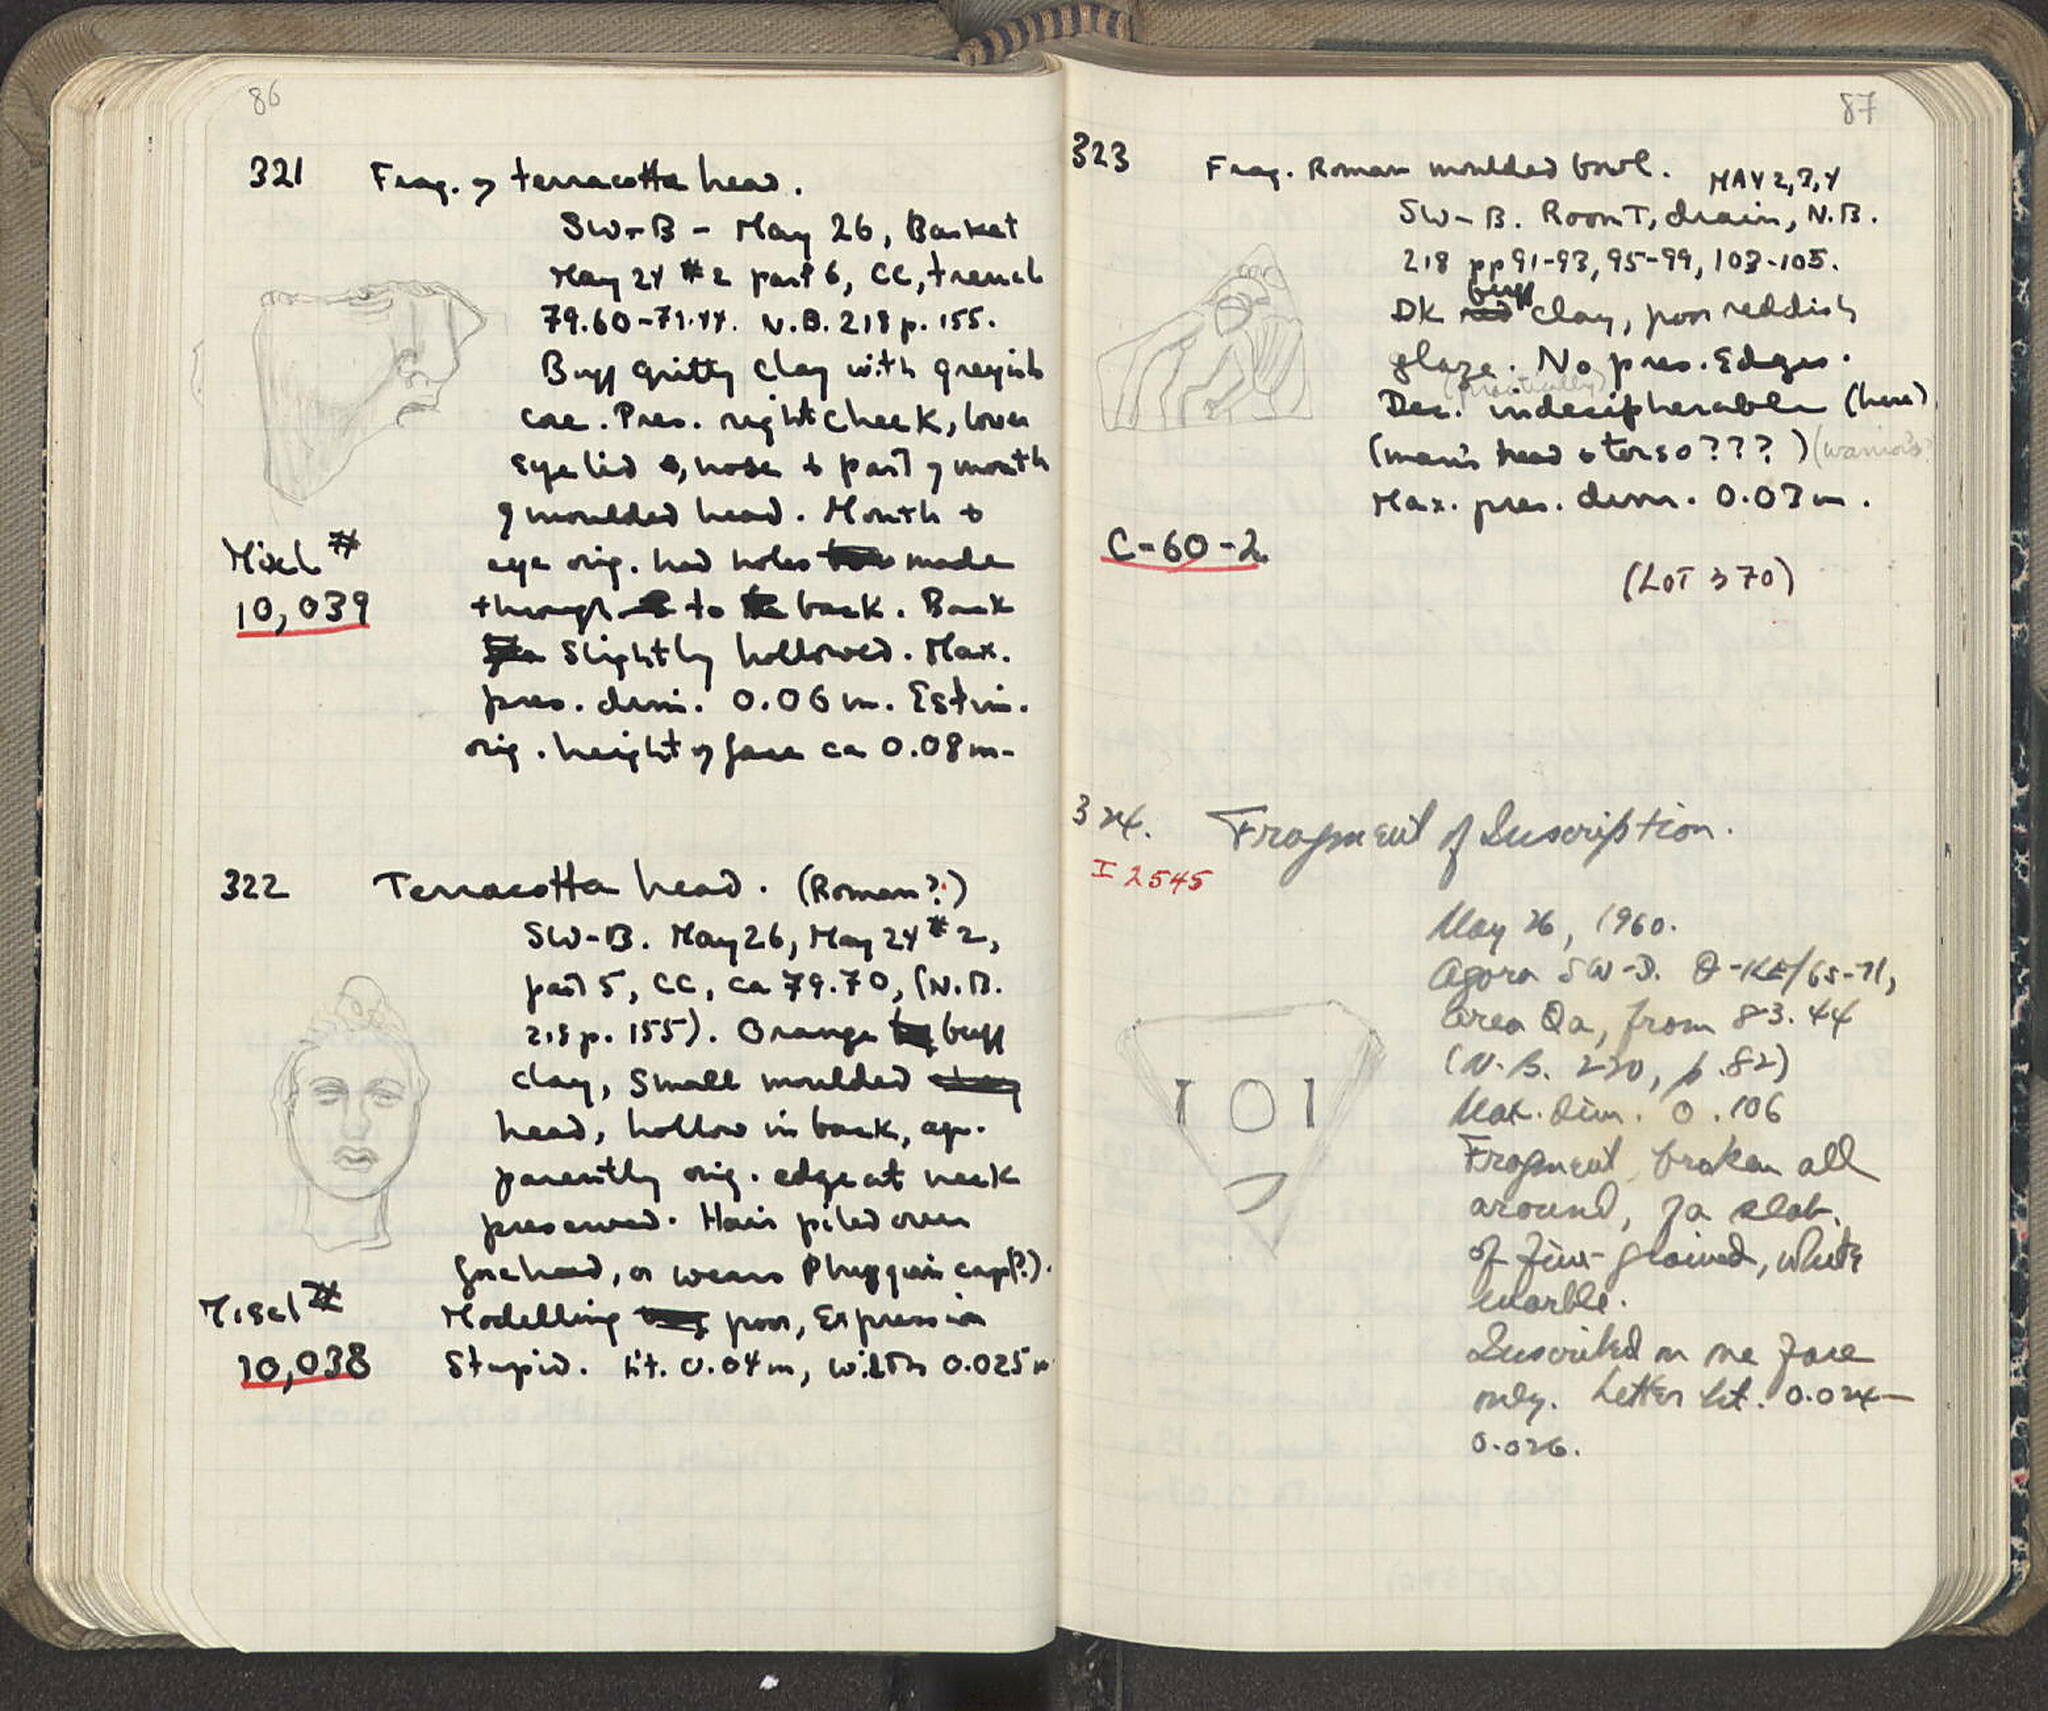 86
321 Frag. of terracotta head.
SW-B - May 26, Basket
May 24 #2 part 6, CC, trench
79.60-79.44. N.B. 218 p. 155.
Buff gritty clay with greyish
core. Pres. right cheek, lower
eyelid, nose & part of mouth
of moulded head. Mouth &
eye orig. had holes made
through to back. Back
slightly hollowed. Max.
pres. dim. 0.06 m. Estim.
orig. height of face ca 0.08m.
Miscl #
10,039
322 Terracotta head. (Roman?)
SW-B. May 26, May 24 #2,
part 5, CC, ca 79.70, (N.B.
218 p. 155). Orange buff
clay, small moulded
head, hollow in back, ap-
parently orig. edge at neck
preserved. Hair piled over
forehead, or wears Phrygian cap(?).
Modelling poor, expression
stupid. Ht. 0.04m, width 0.025m
Miscl #
10,038
87
323 Frag. Roman moulded bowl. MAY 2,3,4
SW-B. Room T, drain, N.B.
218 pp 91-93, 95-99, 103-105.
buff
Dk red clay, poor reddish
glaze. No pres. edges.
(practically)
Dec. indecipherable (here)
(man's head & torso???) (warrior's?
Max. pres. dim. 0.03m.
C-60-2
(LOT 370)
324. Fragment of Inscription.
I 2545
May 26, 1960.
Agora SW-D. Q-KE/65-71,
area Qa, from 83.44
(N.B. 220, p.82)
Max. dim. 0.106
Fragment, broken all
around, of a slab.
of fine-grained, white
marble.
Inscribed on one face
only. Letter ht. 0.024-
0.026.
I O I